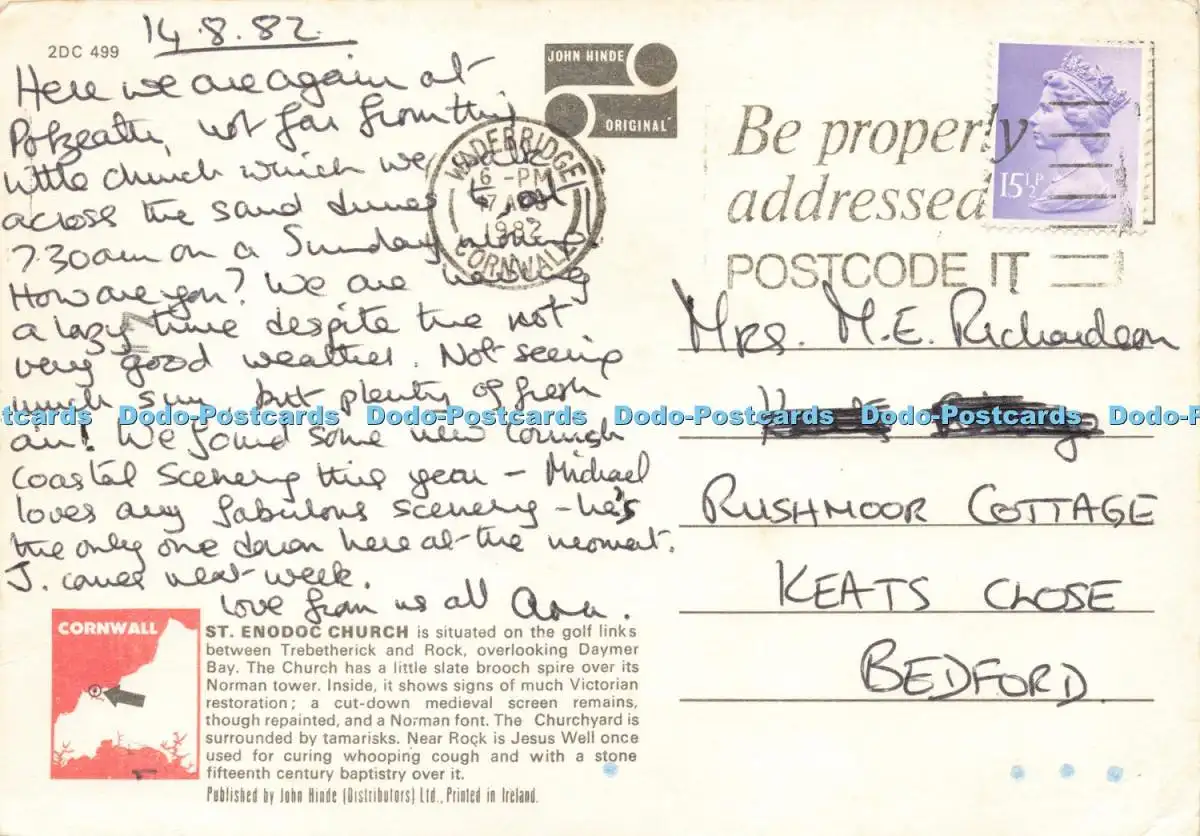 14.8.82.
2DC 499
Here we are again at
Polzeath, not far from this
little church which we walk
across the sand dunes to at
7.30am on a Sunday morning.
How are you? We are having
a lazy time despite the not
very good weather. Not seeing
much sun but plenty of fresh
air! We found some new Cornish
Coastal Scenery this year - Michael
loves any fabulous scenery - he's
the only one down here at the moment.
J. comes next week.
Love from us all
CORNWALL
ST. ENODOC CHURCH is situated on the golf links
between Trebetherick and Rock, overlooking Daymer
Bay. The Church has a little slate brooch spire over its
Norman tower. Inside, it shows signs of much Victorian
restoration; a cut-down medieval screen remains,
though repainted, and a Norman font. The Churchyard is
surrounded by tamarisks. Near Rock is Jesus Well once
used for curing whooping cough and with a stone
fifteenth century baptistry over it.
Published by John Hinde (Distributors) Ltd., Printed in Ireland.
JOHN HINDE
ORIGINAL
WADEBRIDGE
6 - PM
1982
CORNWALL
Be properly
addressed
POSTCODE IT
15½P
Mrs. M.E. Richardson
RUSHMOOR COTTAGE
KEATS CLOSE
BEDFORD.
Dodo-Postcards Dodo-Postcards Dodo-Postcards Dodo-Postcards